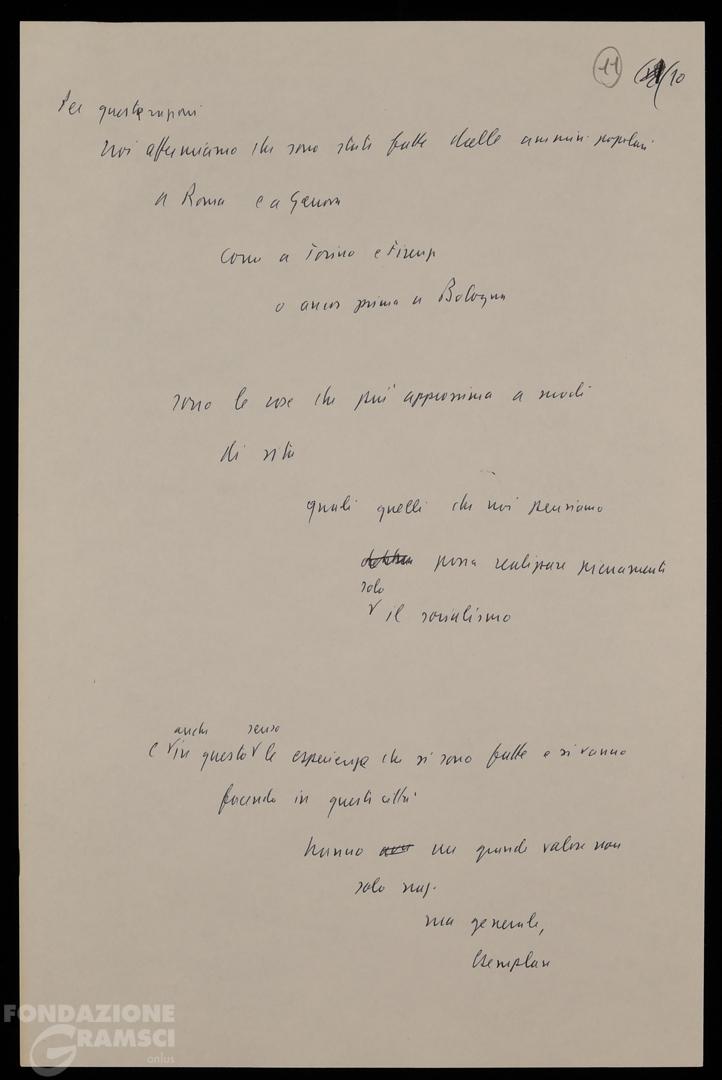 11 /10
Per queste ragioni
noi affermiamo che sono state fatte dalle ammini popolari
a Roma e a Genova
come a Torino e Firenze
o ancor prima a Bologna
sono le cose che più approssima a modi
di vita
quali quelli che noi pensiamo
possa realizzare pienamente
solo
il socialismo
anche senso
E in questo le esperienze che si sono fatte e si vanno
facendo in queste città
hanno un grande valore non
solo naz.
ma generale,
esemplare
FONDAZIONE
GRAMSCI
onlus